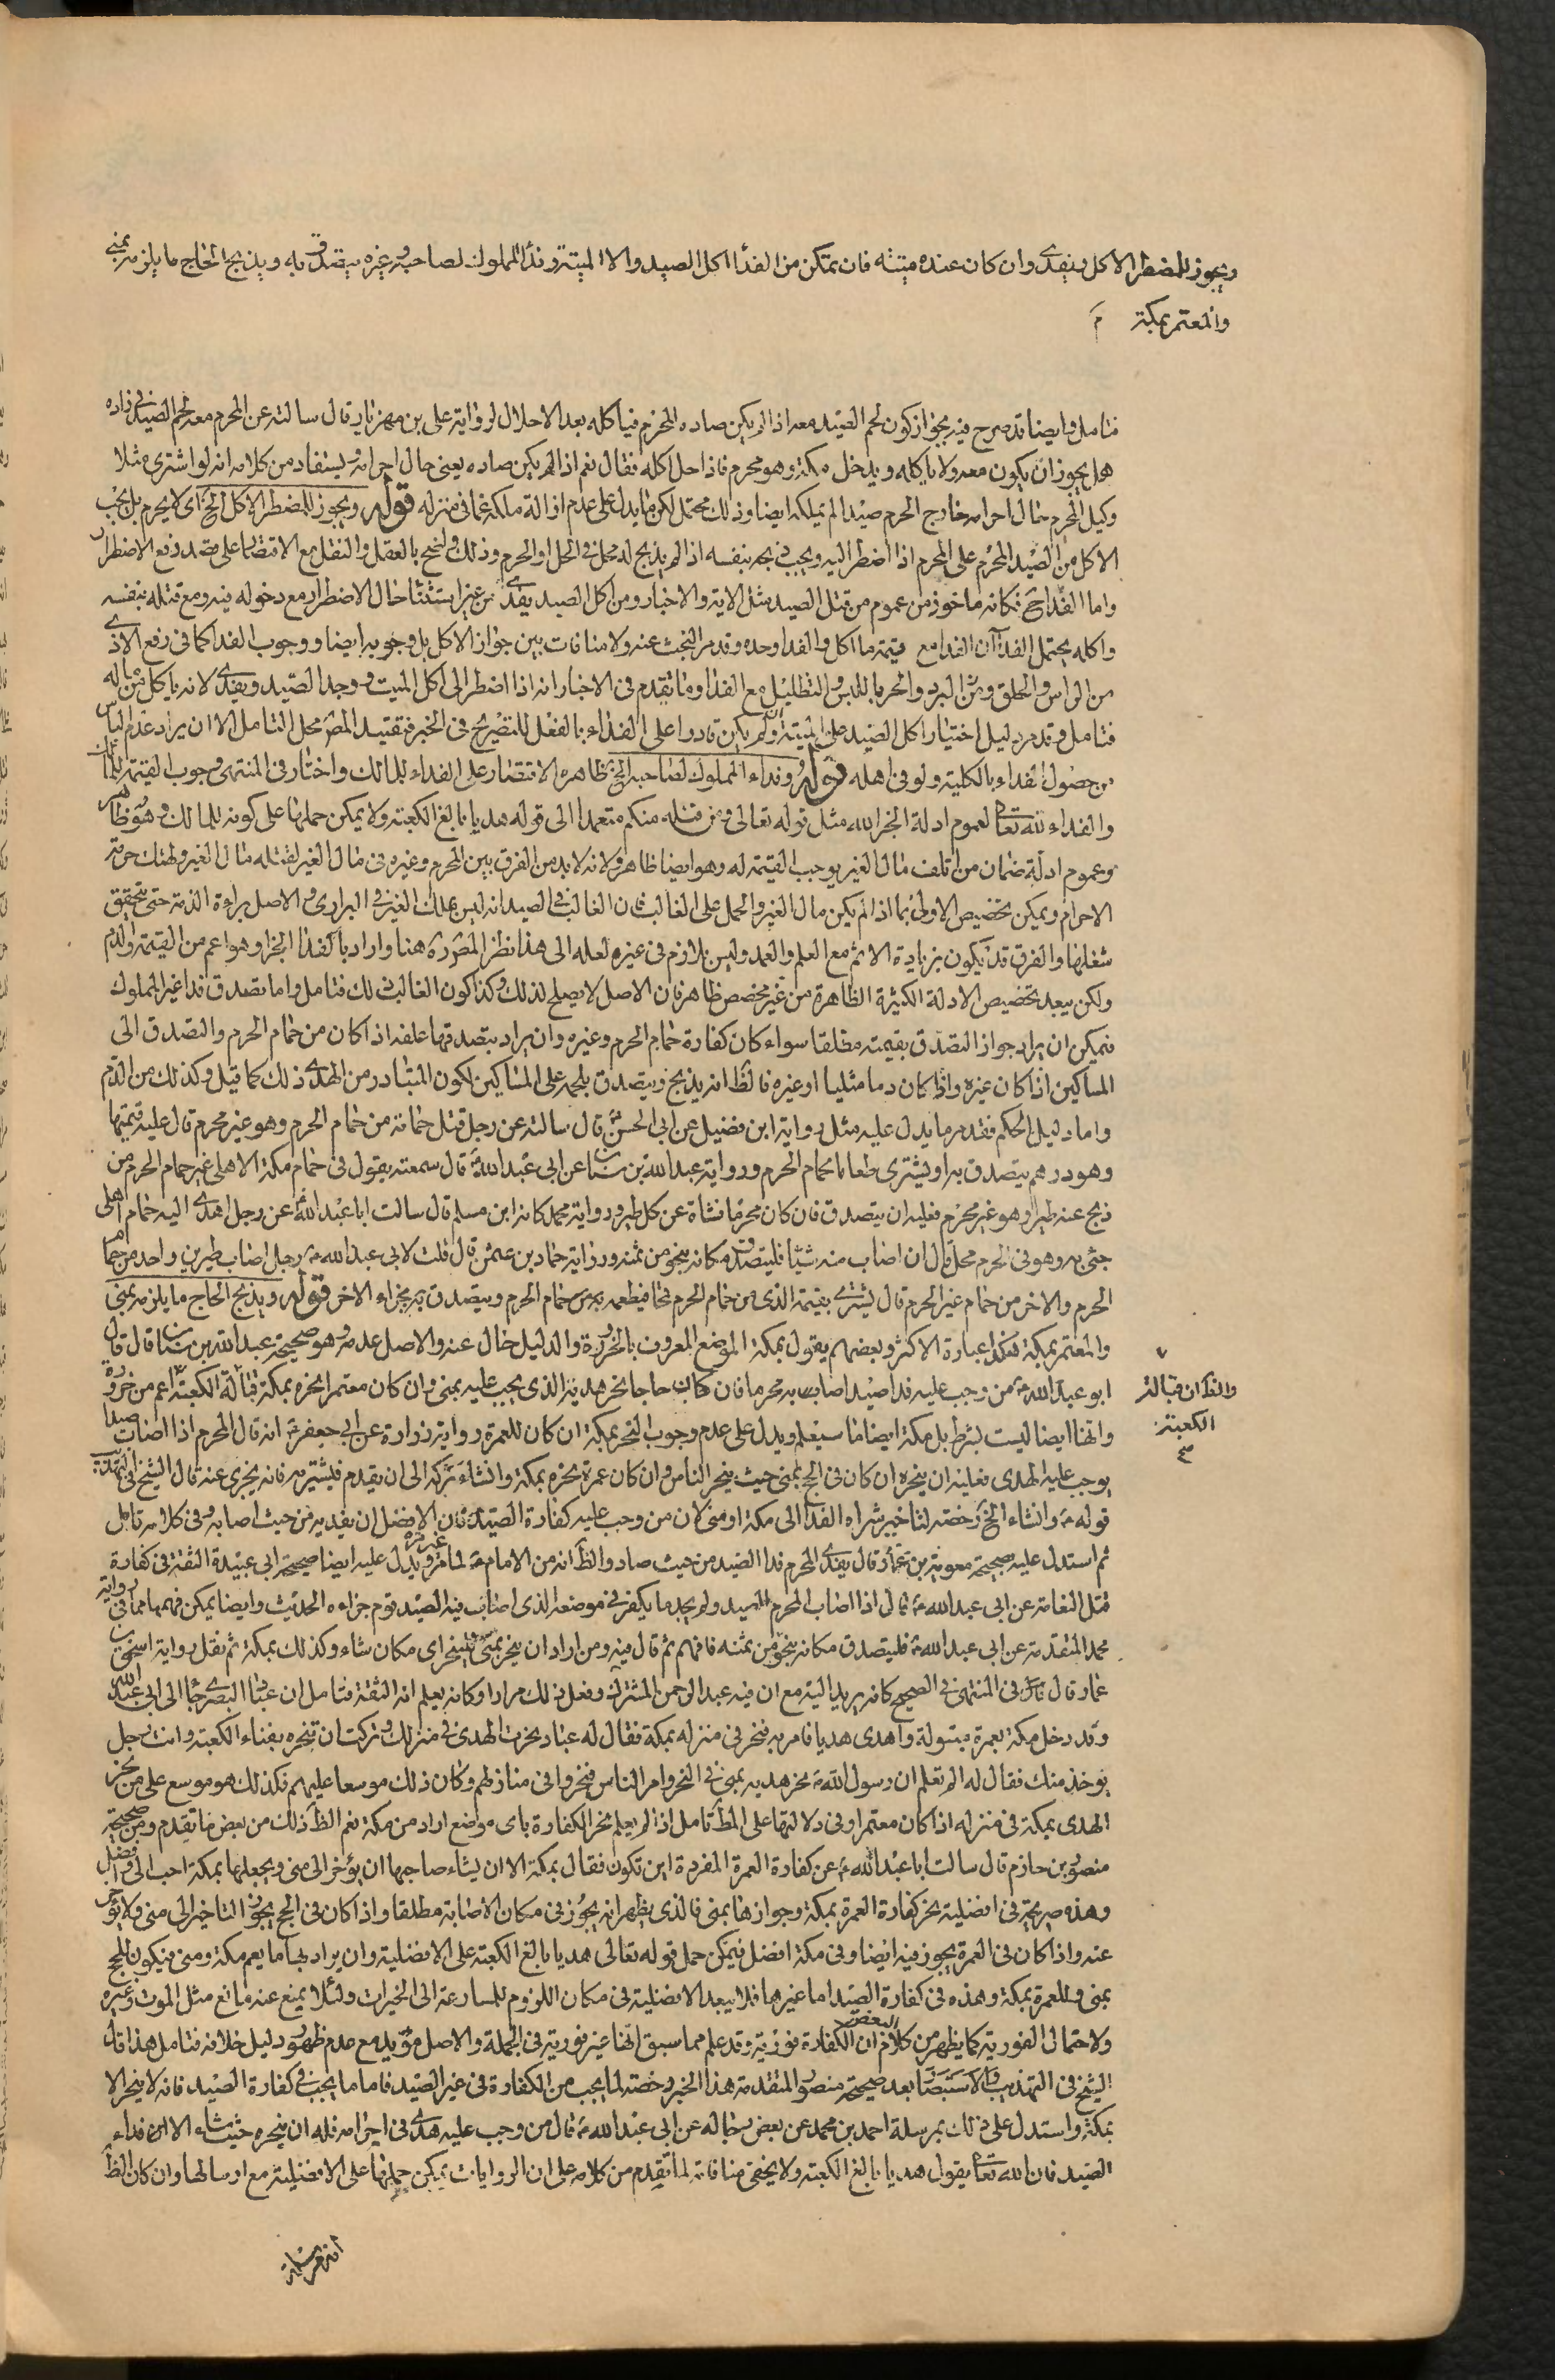 ويجوز للمضطر الاكل ويفدى وان كان عنده ميتة فان تمكن من الفداء اكل الصيد والا الميتة وفداء المملوك لصاحبه وغيره يتصدق به ويذبح الحاج ما يلزمه بمنى
والمعتمر بمكة م
فتامل وايضا قد صرح فيه بجواز كون لحم الصيد معه اذا لم يكن صاده المحرم فياكله بعد الاحلال لرواية على بن مهزيار قال سالته عن المحرم معه لحم الصيد فى زاده
هل يجوز ان يكون معه ولا ياكله ويدخل مكة وهو محرم فاذا احل اكله فقال نعم اذا لم يكن صاده يعنى حال احرامه ويستفاد من كلامه انه لو اشترى مثلا
وكيل المحرم حال احرامه خارج الحرم صيدا لم يملكه ايضا وذلك محتمل لكن ما يدل على عدم ازالة ملكه عما فى منزله قوله ويجوز للمضطر الاكل الخ اى لا يحرم بل يجب
الاكل من الصيد المحرم على المحرم اذا اضطر اليه ويجب ذبحه بنفسه اذا لم يذبح له محل فى الحل او الحرم وذلك واضح بالعقل والنقل مع الاقتصار على قصد دفع الاضطرار
واما الفداء فكانه ماخوذ من عموم من قتل الصيد مثل الاية والاخبار ومن اكل الصيد يفدى من غير استثناء حال الاضطرار مع دخوله فيه ومع قتله بنفسه
واكله يحتمل الفداآن الفداء مع قيمة ما اكل والفداء وحده وقد مر البحث عنه ولا منافات بين جواز الاكل بل وجوبه ايضا ووجوب الفداء كما فى رفع الاذى
من الراس والحلق ومن البرد والحر باللبس والتظليل مع الفداء وما تقدم فى الاخبار انه اذا اضطر الى اكل الميت ووجد الصيد ويفدى لانه ياكل من ماله
فتامل وقد مر دليل اختيار اكل الصيد على الميتة وان لم يكن قادرا على الفداء بالفعل للتصريح فى الخبر فتقييد المص محل التامل الا ان يراد عدم الياس
من حصول الفداء بالكلية ولو فى اهله قوله وفداء المملوك لصاحبه الخ ظاهره الاقتصار على الفداء للمالك واختار فى المنتهى وجوب القيمة للمالك
والفداء لله تعالى لعموم ادلة الجزاء لله مثل قوله تعالى ومن قتله منكم متعمدا الى قوله هديا بالغ الكعبة ولا يمكن حملها على كونه للمالك وهو ظاهر
وعموم ادلة ضمان من اتلف مال الغير يوجب القيمة له وهو ايضا ظاهر ولانه لا بد من الفرق بين المحرم وغيره فى مال الغير لقتله مال الغير ولهتك حرمة
الاحرام ويمكن تخصيص الاولى بما اذا لم يكن مال الغير والحمل على الغالب فان الغالب فى الصيد انه ليس بملك الغير فى البرارى والاصل براءة الذمة حتى يتحقق
شغلها والفرق قد يكون بزيادة الاثم مع العلم والعمد وليس بلازم فى غيره لعله الى هذا نظر المص ره هنا واراد بالفداء الجزاء وهو اعم من القيمة والدم
ولكن يبعد تخصيص الادلة الكثيرة الظاهرة من غير مخصص ظاهر فان الاصل لا يصلح لذلك وكذا كون الغالب ذلك فتامل واما تصدق فداء غير المملوك
فيمكن ان يراد جواز التصدق بقيمته مطلقا سواء كان كفارة حمام الحرم وغيره وان يراد بتصدقها علفه اذا كان من حمام الحرم والتصدق الى
المساكين اذا كان غيره واذا كان دما مثليا او غيره فالظ انه يذبح ويتصدق بلحمه على المساكين لكون المتبادر من الهدى ذلك كما قيل وكذلك من الدم
واما دليل الحكم فقد مر ما يدل عليه مثل رواية ابن فضيل عن ابى الحسن ع قال سالته عن رجل قتل حمامة من حمام الحرم وهو غير محرم قال عليه قيمتها
وهو درهم يتصدق به او يشترى طعاما لحمام الحرم ورواية عبد الله بن سنان عن ابى عبد الله ع قال سمعته يقول فى حمام مكة الاهلى غير حمام الحرم من
ذبح عنه طيرا وهو غير محرم فعليه ان يتصدق فان كان محرما فشاة عن كل طير ورواية محمد كانه ابن مسلم قال سالت ابا عبد الله ع عن رجل اهدى اليه حمام اهلى
جئ به وهو فى الحرم محل قال ان اصاب منه شيئا فليتصدق مكانه بنحو من ثمنه ورواية حماد بن عثمن قال قلت لابى عبد الله ع رجل اصاب طيرين واحد من حمام
الحرم والاخر من حمام غير الحرم قال يشترى بقيمة الذى من حمام الحرم قمحا فيطعمه به حمام الحرم ويتصدق بجزاء الاخر قوله ويذبح الحاج ما يلزمه بمنى
والمعتمر بمكة هكذا عبارة الاكثر وبعضهم يقول بمكة الموضع المعروف بالحزورة والدليل خال عنه والاصل عدمه وهو صحيحة عبد الله بن سنان قال قال
ابو عبد الله ع من وجب عليه فداء صيدا اصابه محرما فان كان حاجا نحر هديه الذى يجب عليه بمنى وان كان معتمرا نحره بمكة قبالة الكعبة اعم من حزورة
والظ ان قبالة
الكعبة
وانها ايضا ليست بشرط بل مكة ايضا ما سيعلم ويدل على عدم وجوب النحر بمكة ان كان للعمرة رواية زرارة عن ابى جعفر ع انه قال المحرم اذا اصاب صيدا
يوجب عليه الهدى فعليه ان ينحره ان كان فى الحج بمنى حيث ينحر الناس وان كان عمرة نحره بمكة وان شاء تركه الى ان يقدم فيشتريه فانه يجزى عنه قال الشيخ فى التهذيب
قوله ع وان شاء الخ رخصة لتاخير شراء الفداء الى مكة او منى لان من وجب عليه كفارة الصيد فان الافضل ان يفديه من حيث اصابه وفى كلامه تامل
ثم استدل عليه بصحيحة معوية بن عمار قال يفدى المحرم فداء الصيد من حيث صاد والظ انه من الامام ع لما مر غير مرة ويدل عليه ايضا صحيحة ابى عبيدة الثقة فى كفارة
قتل النعامة عن ابى عبد الله ع قال اذا اصاب المحرم الصيد ولم يجد ما يكفر فى موضعه الذى اصاب فيه الصيد قوم جزاءه الحديث وايضا يمكن فهمها مما فى رواية
محمد المتقدمة عن ابى عبد الله ع فليتصدق مكانه بنحو من ثمنه فافهم ثم قال فيه ومن اراد ان ينحر بمنى فلينحر اى مكان شاء وكذلك بمكة ثم نقل رواية اسحق بن
عمار وقال فى المنتهى فى الصحيح كانه يريد اليه مع ان فيه عبد الرحمن المشترك وفعل ذلك مرارا وكانه يعلم انه الثقة فتامل ان عباد البصرى جاء الى ابى عبد الله
وقد دخل مكة بعمرة مبتولة واهدى هديا فامر به فنحر فى منزله بمكة فقال له عباد نحرت الهدى فى منزلك وتركت ان تنحره بفناء الكعبة وانت رجل
يوخذ منك فقال له الم تعلم ان رسول الله ص نحر هديه بمنى فى النحر وامر الناس فنحروا فى منازلهم وكان ذلك موسعا عليهم فكذلك هو موسع على من نحر
الهدى بمكة فى منزله اذا كان معتمرا وفى دلالتها على المط تامل اذ لم يعلم نحر الكفارة باى موضع اراد من مكة نعم الظ ذلك من بعض ما تقدم ومن صحيحة
منصور بن حازم قال سالت ابا عبد الله ع عن كفارة العمرة المفردة اين تكون فقال بمكة الا ان يشاء صاحبها ان يؤخر الى منى ويجعلها بمكة احب الى وافضل
وهذه صريحة فى افضلية نحر كفارة العمرة بمكة وجوازها بمنى فالذى يظهر انه يجوز فى مكان الاصابة مطلقا واذا كان فى الحج يجوز التاخير الى منى ولا يؤخر
عنه واذا كان فى العمرة يجوز فيه ايضا وفى مكة افضل فيمكن حمل قوله تعالى هديا بالغ الكعبة على الافضلية وان يراد بها ما يعم مكة ومنى فيكون للحج
بمنى وللعمرة بمكة وهذه فى كفارة الصيد اما غيرها فلا يبعد الافضلية فى مكان اللزوم للمسارعة الى الخيرات ولئلا يمنع عنه مانع مثل الموت وغيره
ولاحتمال الفورية كما يظهر من كلام البعض ان الكفارة فورية وقد علم مما سبق انها غير فورية فى الجملة والاصل مؤيد مع عدم ظهور دليل خلافه فتامل هذا قال
الشيخ فى التهذيب والاستبصار بعد صحيحة منصور المتقدمة هذا الخبر رخصة لما يجب من الكفارة فى غير الصيد فاما ما يجب فى كفارة الصيد فانه لا ينحر الا
بمكة واستدل على ذلك بمرسلة احمد بن محمد عن بعض رجاله عن ابى عبد الله ع قال من وجب عليه هدى فى احرامه فله ان ينحره حيث شاء الا فداء
الصيد فان الله تعالى يقول هديا بالغ الكعبة ولا يخفى منافاته لما تقدم من كلامه على ان الروايات يمكن حملها على الافضلية مع ارسالها وان كان الظ